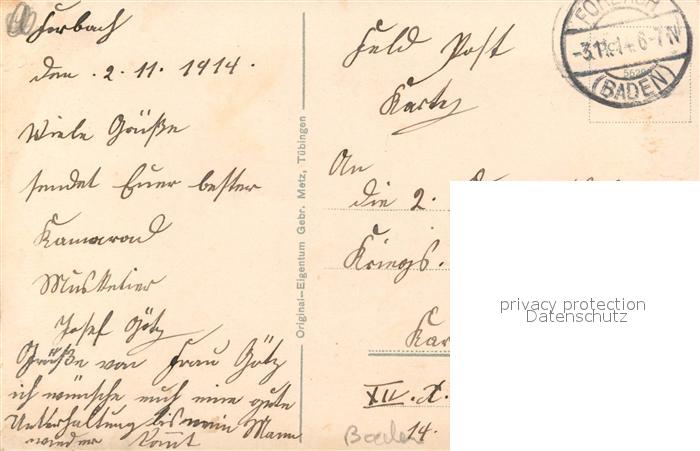 Forbach
den . 2. 11. 1914.
Viele Grüße
sendet Euer bester
Kamarad
Musketier
Josef Götz
Grüße von Frau Götz
ich wünsche euch eine gute
Unterhaltung bis mein Mann
wieder kommt
Original-Eigentum Gebr. Metz, Tübingen
Feld Post
Karte
FORBACH
-3.11.14. 6-7 N
(BADEN)
An
die 2.
Kriegs.
Kar
XII. X.
14.
Baden
privacy protection
Datenschutz